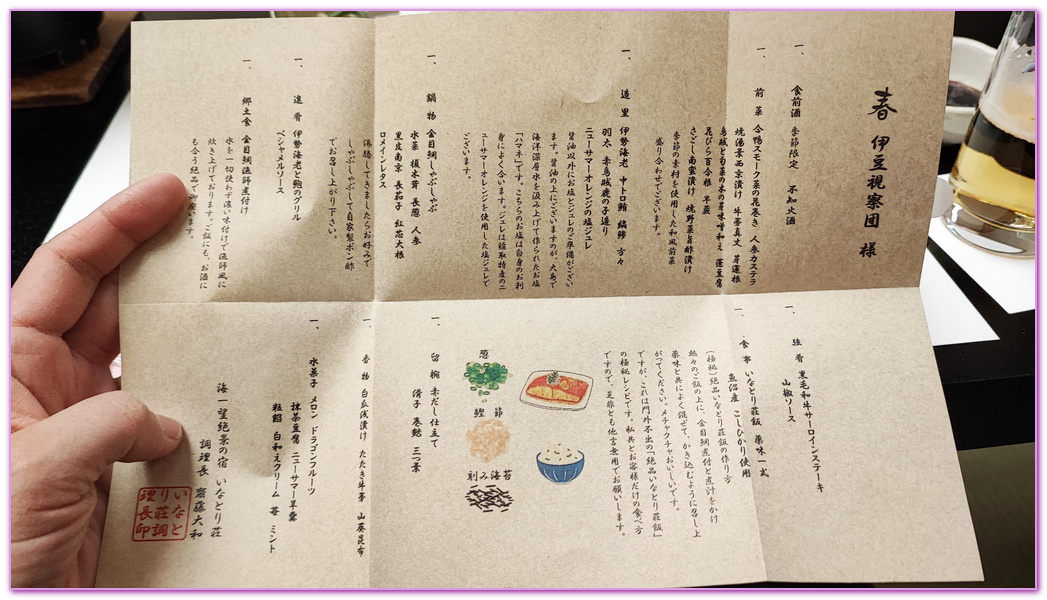 春 伊豆視察団 様
一、食前酒 季節限定 不知火酒
一、前菜 合鴨スモーク菜の花巻き 人参カステラ
焼湯葉西京漬け 牛蒡真丈 芽蓮根
烏賊と旬菜の木の芽味噌和え 蓮豆腐
花びら百合根 早蕨
さごし南蛮漬け 焼野菜旨酢漬け
季節の素材を使用した和風前菜
盛り合わせでございます。
一、造里 伊勢海老 中トロ鮪 縞鯵 方々
羽太 赤烏賊鹿の子造り
ニューサマーオレンジの塩ジュレ
醤油以外にお塩とジュレのご準備がござい
ます。醤油の上にございますのが、大島で
海洋深層水を汲み上げて作られたお塩
「ハマネ」です。こちらのお塩は白身のお刺
身によく合います。ジュレは稲取特産のニ
ューサマーオレンジを使用した塩ジュレで
ございます。
一、鍋物 金目鯛しゃぶしゃぶ
水菜 榎木茸 長葱 人参
黒皮南京 長茄子 紅芯大根
ロメインレタス
沸騰してきましたらお好みで
しゃぶしゃぶして自家製ポン酢
でお召し上がり下さい。
一、進肴 伊勢海老と鮑のグリル
ベシャメルソース
一、郷土食 金目鯛漁師煮付け
水を一切使わず濃い味付けで漁師風に
炊き上げております。ご飯にも、お酒に
も合う絶品でございます。
一、強肴 黒毛和牛サーロインステーキ
山椒ソース
一、食事 いなとり荘飯 薬味一式
魚沼産 こしひかり使用
(極秘)絶品いなとり荘飯の作り方
熱々のご飯の上に、金目鯛煮付と煮汁をかけ
薬味と共によく混ぜて、かき込むように召し上
がってください。メチャクチャおいしいです。
ですが、これは門外不出の「絶品いなとり荘飯」
の極秘レシピです。私共とお客様だけの食べ方
ですので、是非とも他言無用でお願いします。
葱
鰹節
刻み海苔
一、留椀 赤だし仕立て
滑子 巻麩 三つ葉
一、香物 白瓜浅漬け たたき牛蒡 山葵昆布
一、水菓子 メロン ドラゴンフルーツ
抹茶豆腐 ニューサマー羊羹
粒餡 白和えクリーム 苺 ミント
海一望絶景の宿 いなとり荘
調理長 齋藤大和
いなと
り荘調
理長印